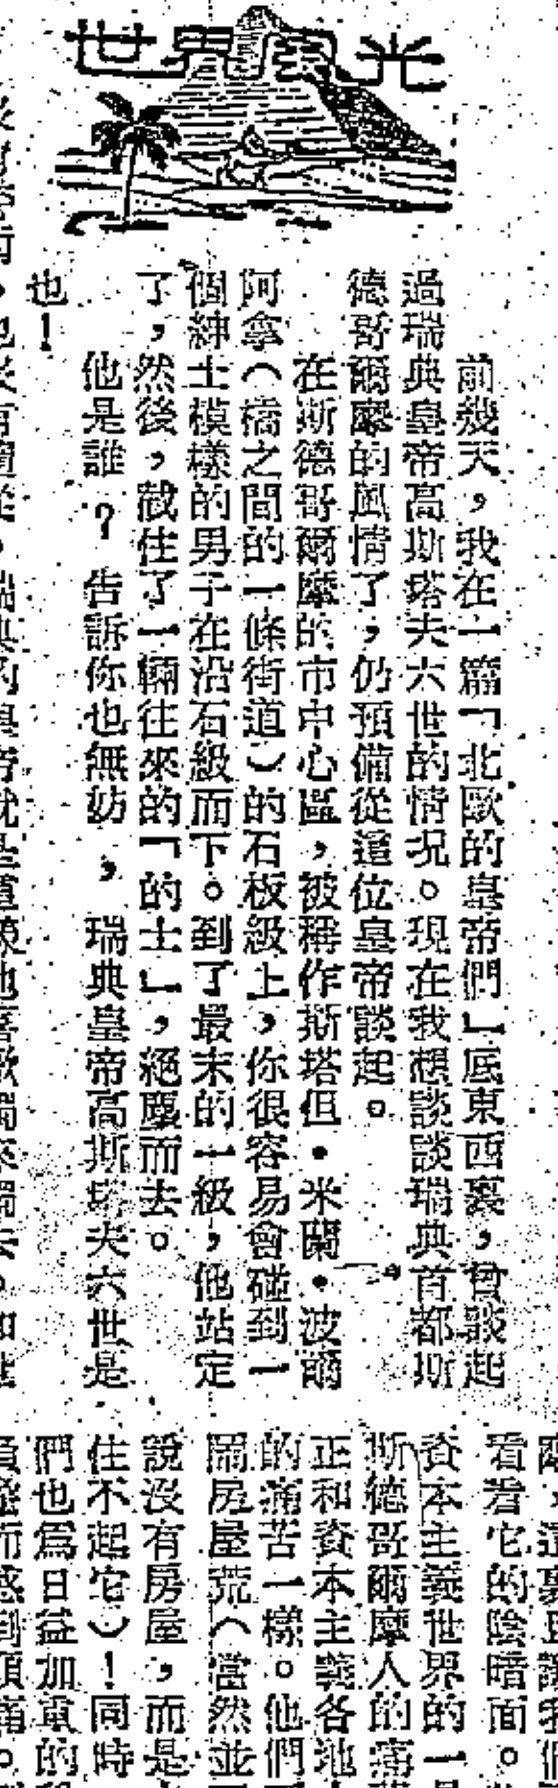 世界風光
前幾天，我在一篇「北歐的皇帝們」底東西裏，曾談起
過瑞典皇帝高斯塔夫六世的情况。現在我想談談瑞典首都斯
德哥爾摩的風情了，仍預備從這位皇帝談起。
在斯德哥爾摩的市中心區，被稱作斯塔但•米蘭•波爾
阿拿（橋之間的一條街道）的石板級上，你很容易會碰到一
個紳士模樣的男子在沿石級而下。到了最末的一級，他站定
了，然後，截住了一輛往來的「的士」，絕塵而去。
他是誰？告訴你也無妨，瑞典皇帝高斯塔夫六世是
也！
看看它的陰暗面。
資本主義世界的一
斯德哥爾摩人的痛
正和資本主義各地
的痛苦一樣。他們
鬧房屋荒（當然並
說沒有房屋，而是
住不起它）！同時
們也爲日益加重的